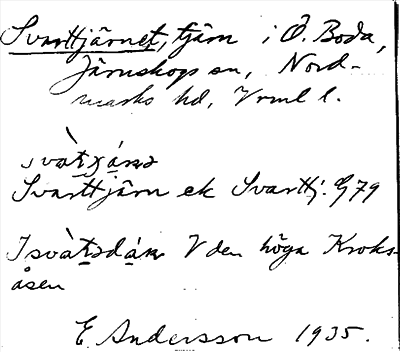 Svarttjärnet, tjärn i Ö. Boda,
Järnskogs sn, Nord-
marks hd, Vrml l.
svàtjánə
Svarttjärn ek Svarttj. G79
I svàtədán V den höga Kroks-
åsen
E Andersson 1935.